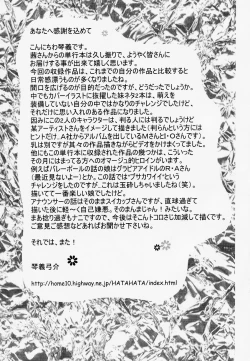 あなたへ感謝を込めて
こんにちわ琴義です。
茜さんからの単行本は久し振りで、ようやく皆さんに
お届けする事が出来て嬉しい思います。
今回の収録作品は、これまでの自分の作品と比較すると
日常感漂うものが多くなりましたね。
間口を広げるのが目的だったのですが、どうだったでしょうか。
中でもカバーイラストに抜擢した妹ネタ2本は、萌えを
装備していない自分の中ではかなりのチャレンジでしたけど、
それだけに思い入れのある作品になりました。
因みにこの2人のキャラクターは、判る人には判るけど
某アーティストさんをイメージして描きました(判らんという方には
ヒントだけ。A社からアルバムを出しているMさんとI・Oさんです)。
乳は別ですが其々の作品描きながらビデオをかけまくってました。
その他にもこの単行本に収録された作品の幾つかは、こういった
その月にはまってる方へのオマージュ的ヒロインがいます。
例えばバレーボールの話の娘はグラビアアイドルのR・Aさん
(最近見ないよー)とか。この話では「ブサカワイイ」という
チャレンジをしたのですが、これは玉砕しちゃいましたね(笑)。
描いてて一番楽しい娘でしたけど。
アナウンサーの話ではそのままスイカップさんですし。直球過ぎて
描いた後に軽〜く自己嫌悪。そのまんまじゃん!みたいな。
まあ捻り過ぎもナニですので、今後はそこんトコロさじ加減してゆきます。
ご意見ご感想などあればお聞かせ下さい。
それでは、また!
琴義弓介
http://home10.highway.ne.jp/HATAHATA/index.html